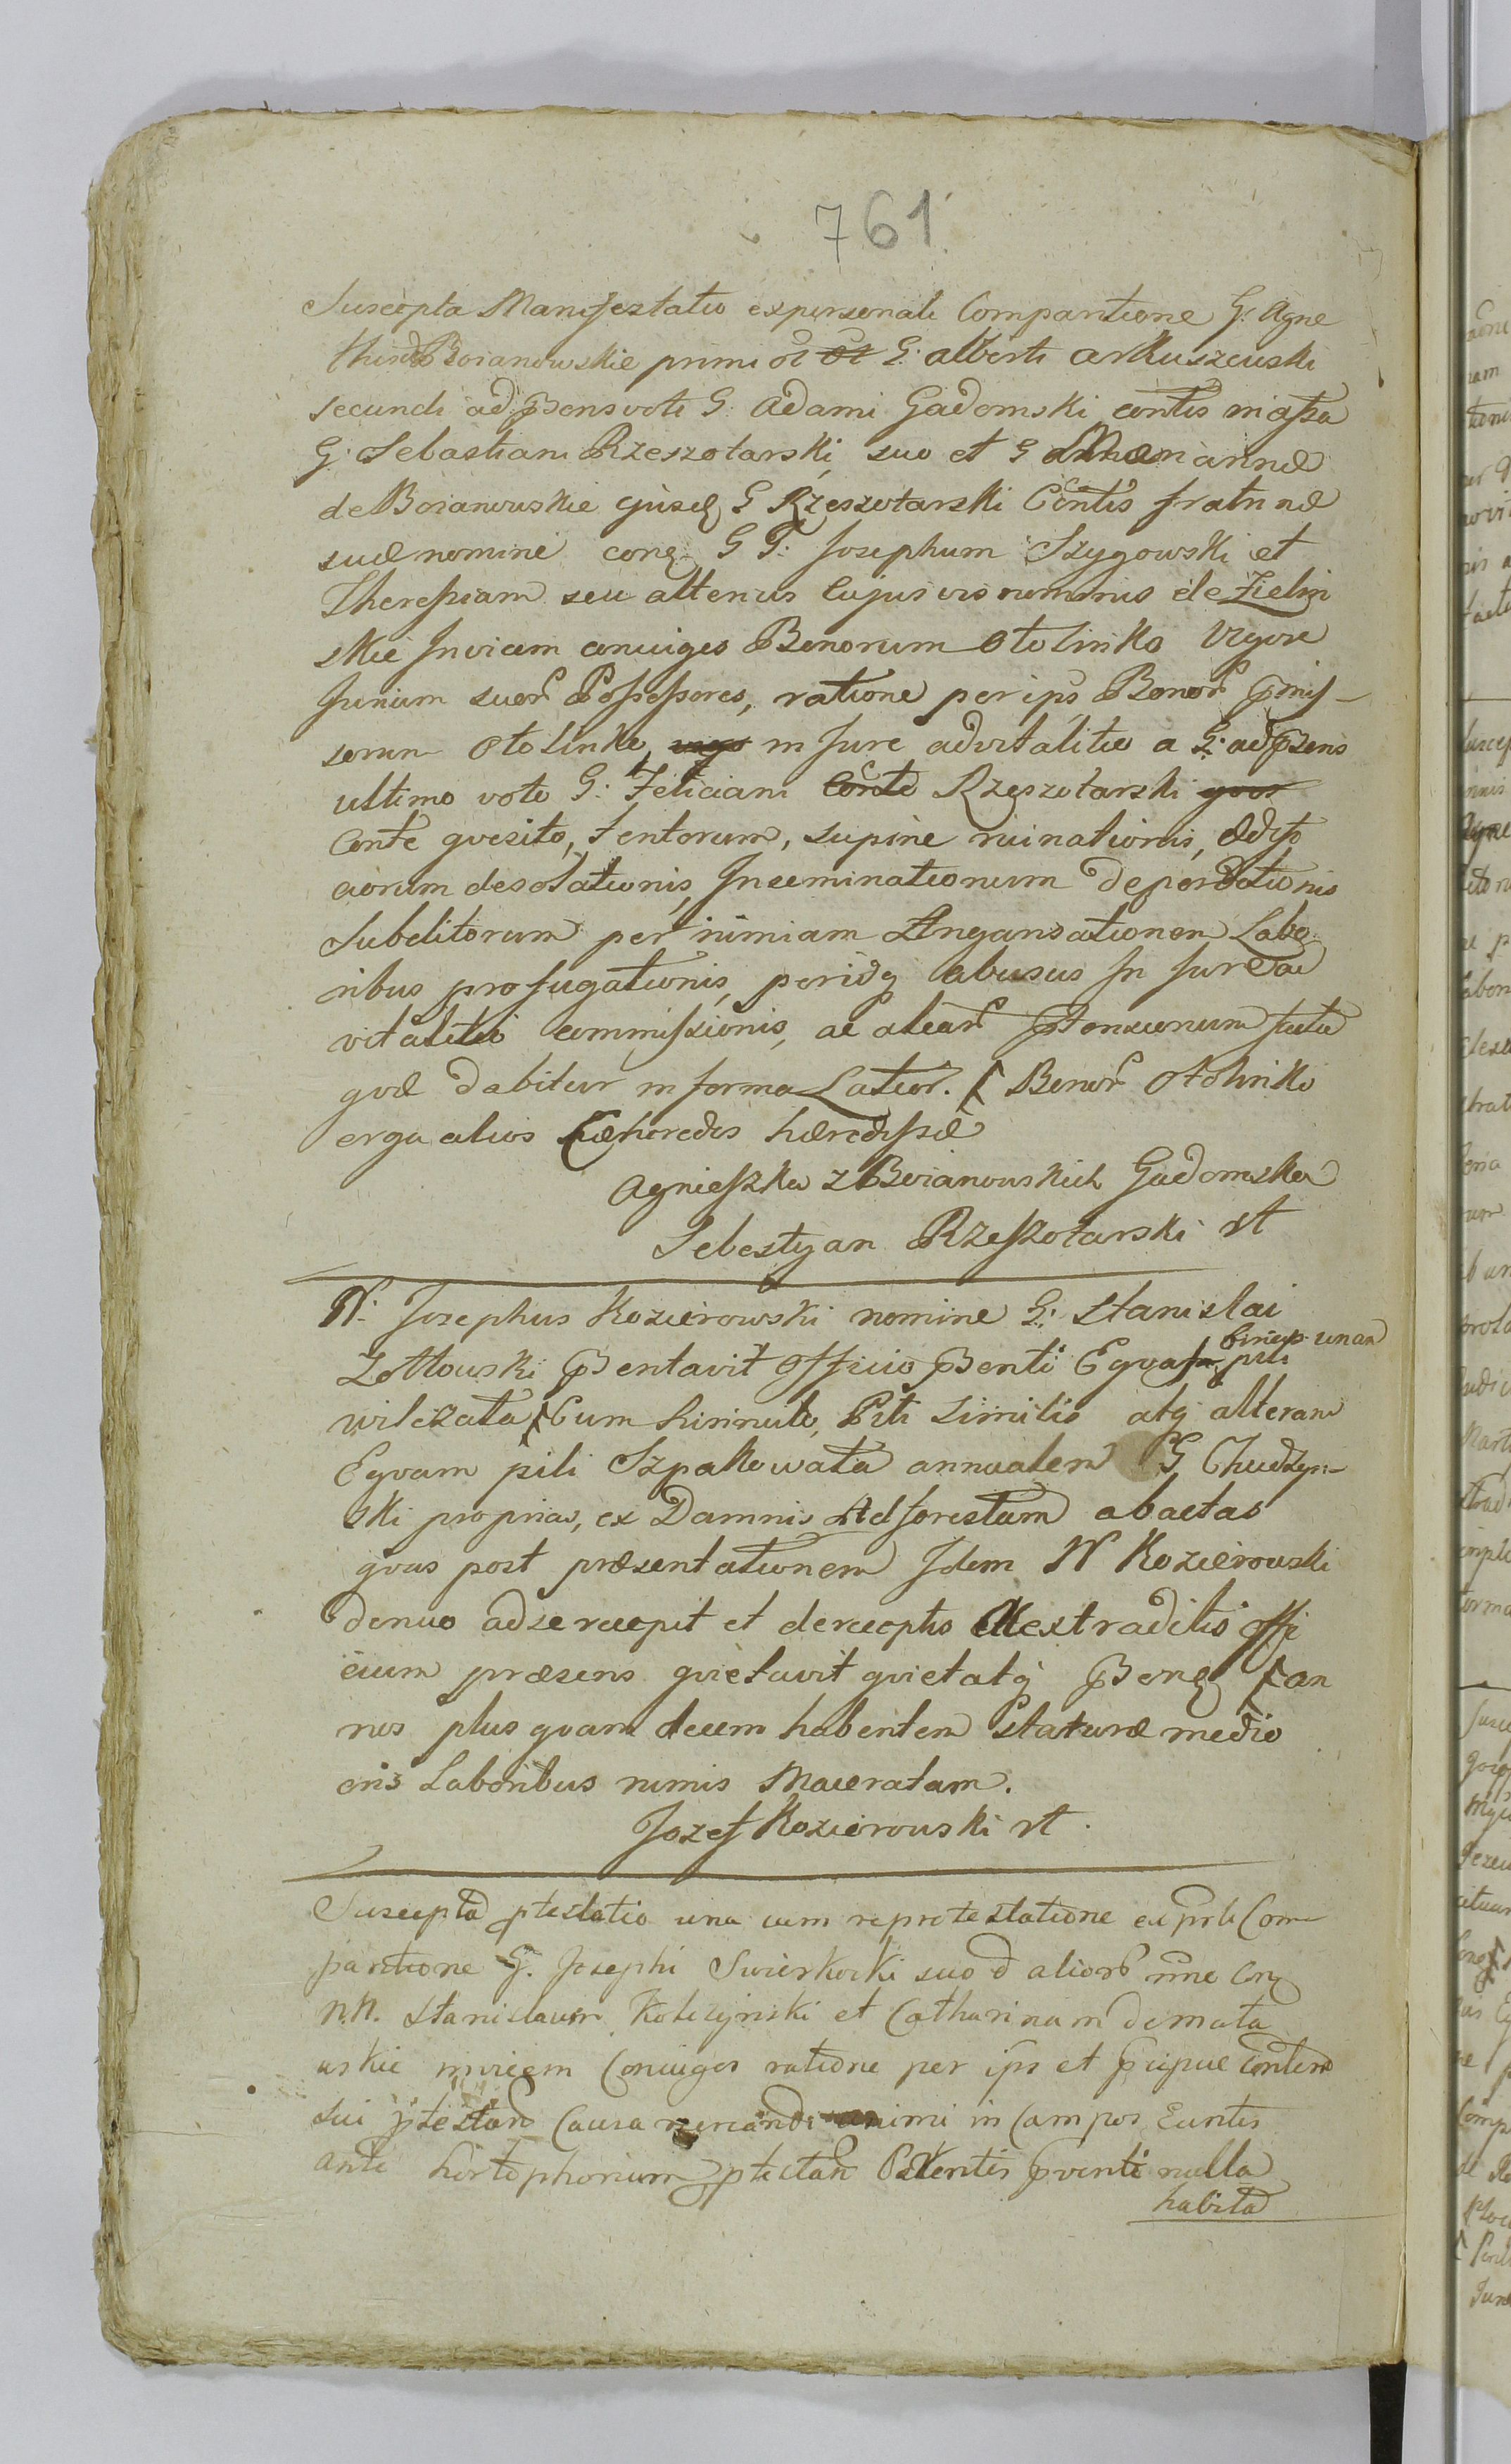 761
Suscepta Manifestatio ex personali Comparitione G: Agne
this de Boianowskie primi G: Alberti Arkuszewski
secundi ad praesens voti G: Adami Gadomski contis in assa
G: Sebastiani Rzeszotarski, suo et G annae
de Boianowskie ejusd G Rzeszotarski Contis fratrinae
suae nomine conq G G: Josephum Szygowski et
Theressiam seu alterius Cujusvis nominis de Zielin
skie Invicem conuiges Bonorum Otolinko Vigore
Jurium suor Possessores, ratione per ips Bonor praemis-
sorum Otolinko, in Jure advitalitio a G: ad praesens
ultimo voto G: Feliciani Rzeszotarski
Conte qvesito, Tentorum, supine ruinationis, ædifi
ciorum desolationis, Inseminationum deperditionis
Subditorum per nimiam Angarisationem Labo:
ribus profugationis, peridq abusus In Jure ad
vitalitio commissionis, ac aliar praetensionum facta
qvæ dabitur in forma Latior. Bonor Otolinko
erga alios hæredes
Agnieszka z Boianowskich Gadomska
Sebestyan Rzeszotarski st
N: Josephus Kozierowski nomine G: Stanislai
Zottowski praesentavit Officio praesenti Eqvam pili unam
wilczata Cum hinnulo, Pili similis atq alteram
Eqvam pili Szpakowata annualem G Chudzyn-
ski proprias, ex Damnis Ad forestam abactas
qvas post præsentationem Idem N Kozierowski
denuo ad se recepit et de receptis extraditis offi
cium præsens qvietavit qvietatq an
nos plus qvam decem habentem staturæ medio
cris Laboribus nimis Maceratam.
Jozef Kozierowski st
Suscepta ptestatio una cum reprotestatione ex prli Com
paritione G. Josephi Swierkocki suo alior nne Conq
N.N. Stanislaum Kolczynski et Catharinam de mata
uskie invicem Coniuges ratione per ips et
sui ptestan Causa animi in Campos Euntis
ante ptestan nulla
habita